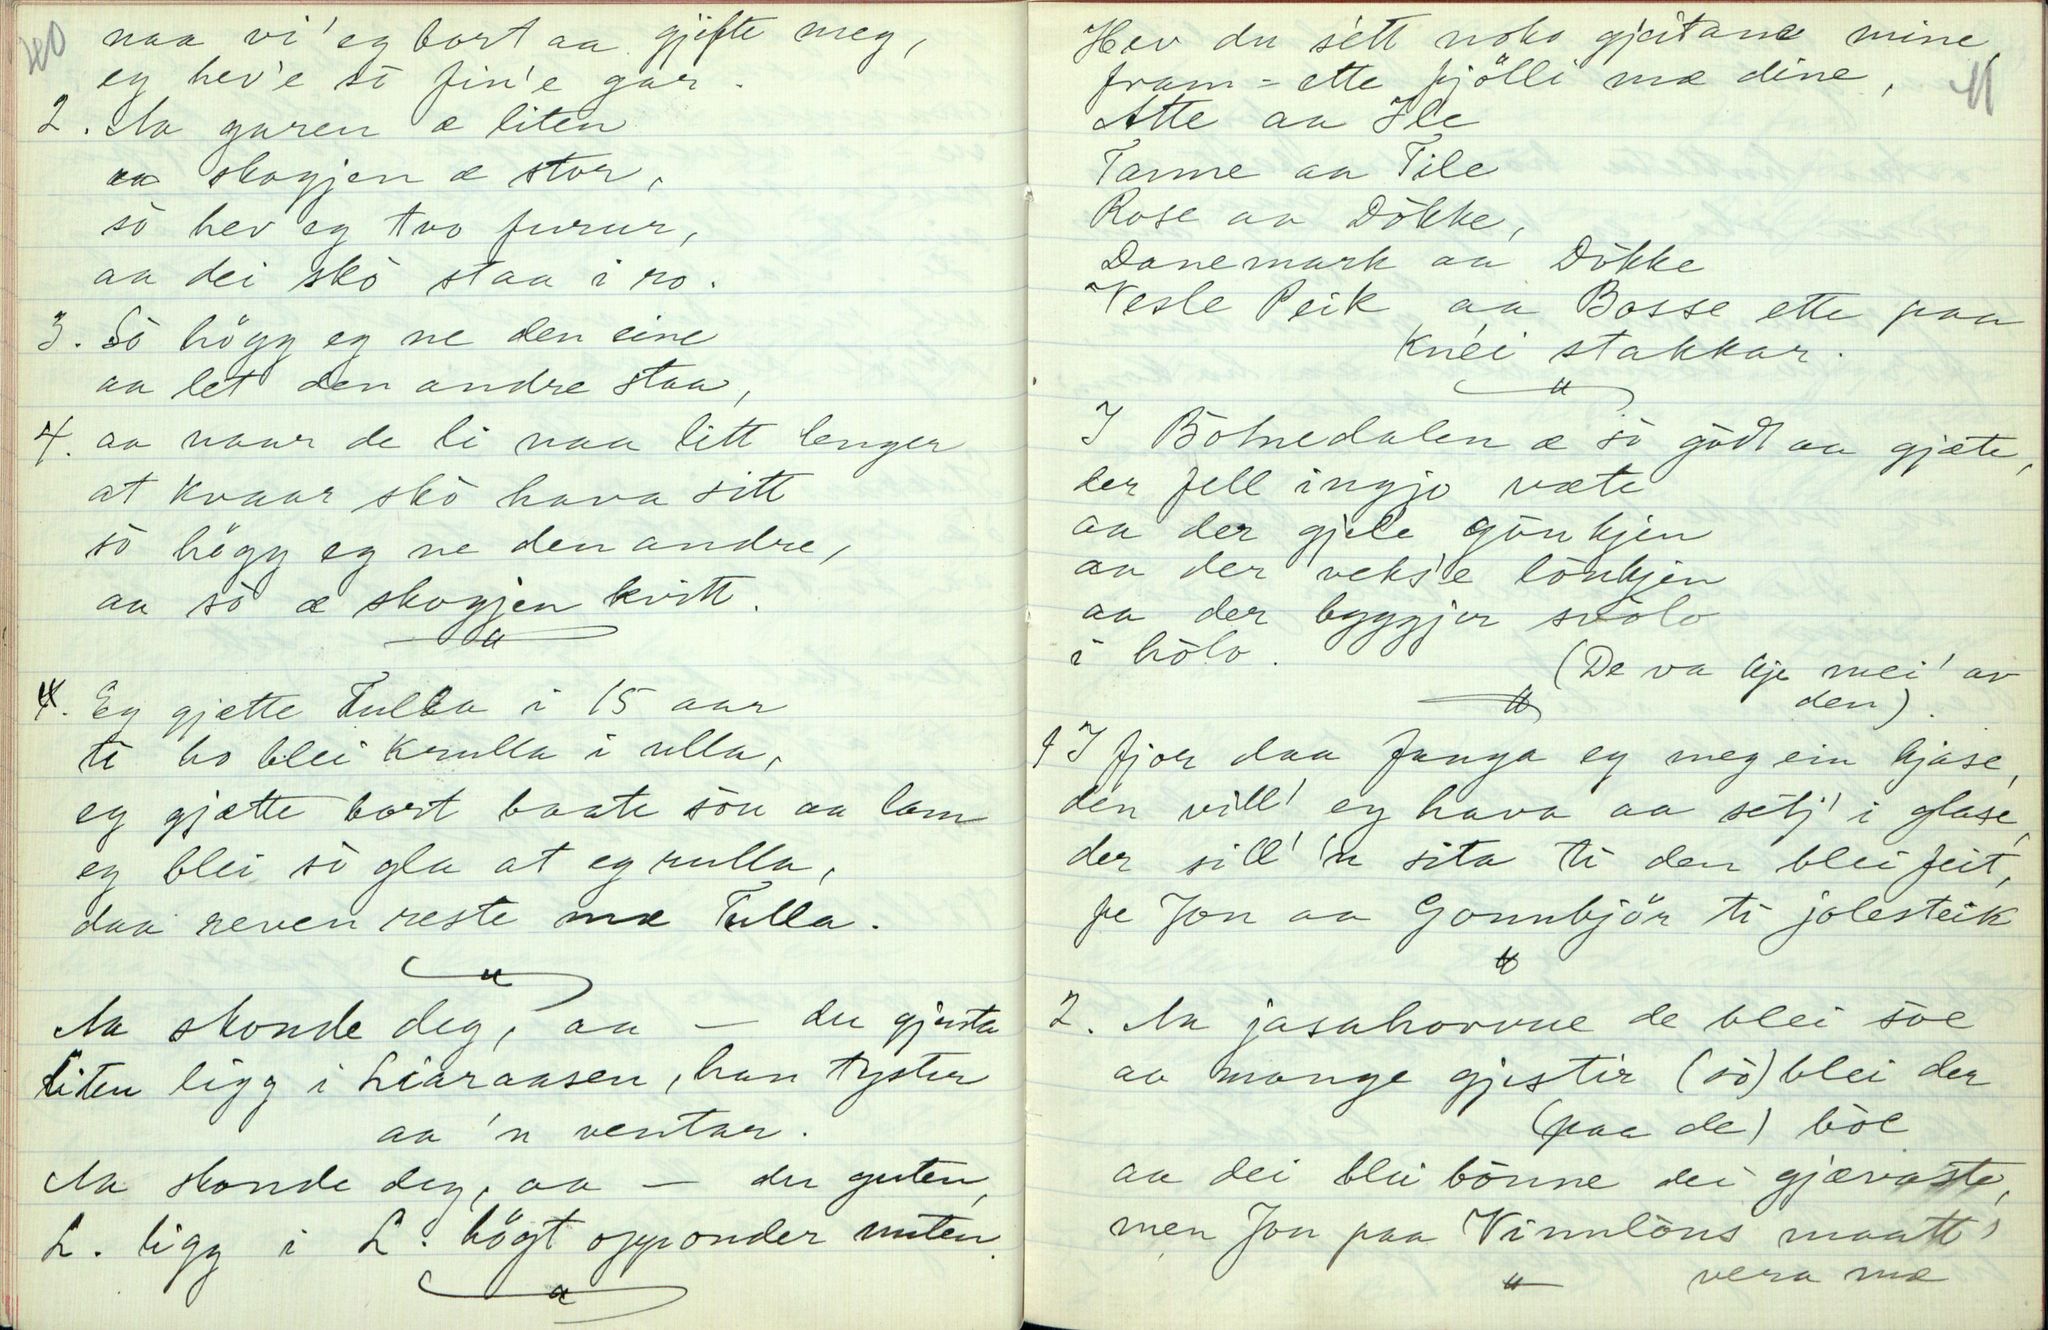 40
naa vi' eg bort aa gjifte meg,
eg hev'e sò fin'e gar.
2. Aa garen æ liten
aa skogjen æ stor,
sò hev eg tvo furur,
aa dei skò staa i ro.
3. Sò högg eg ne den eine
aa let den andre staa,
4. aa naar de li naa litt lenger
at kvaar skò hava sitt
sò högg eg ne den andre,
aa sò æ skogjen kvitt.
4. Eg gjætte Tulla i 15 aar
ti ho blei krulla i ulla,
eg gjætte bort baate sòu aa lam
eg blei sò gla at eg rulla,
daa reven reste mæ Tulla.
Aa skonde deg, aa — du gjenta
liten ligg i Liaraasen, han tyster
aa 'n ventar.
Aa skonde deg, aa — du guten,
L. ligg i L. högt opponder nuten.
41
Hev du sétt noko gjeitane mine,
fram-ette fjölli mæ dine,
Atte aa Ile
Tanne aa Tile
Rose aa Dökke,
Danemark aa Dökke
Vesle Peik aa Bosse ette paa
Knéi stakkar.
I Bòtnedalen æ sò gòdt aa gjæte,
der fell ingjo væte
aa der gjele gòukjen
aa der veks'e lòukjen
aa der byggjer svòlo
i hòlo.
(De va kje mei' av
den).
1 I fjor daa fanga eg meg ein hjase,
den vill' eg hava aa sétj' i glase,
der sill' 'n sita ti den blei feit,
fe Jon aa Gonnbjör ti jolesteik
2. Aa jasahovvue de blei sòe
aa mange gjestir (sò) blei der
(paa de) bòe
aa dei blei bònne dei gjævaste,
men Jon paa Vinnlòus maatt'
vera mæ